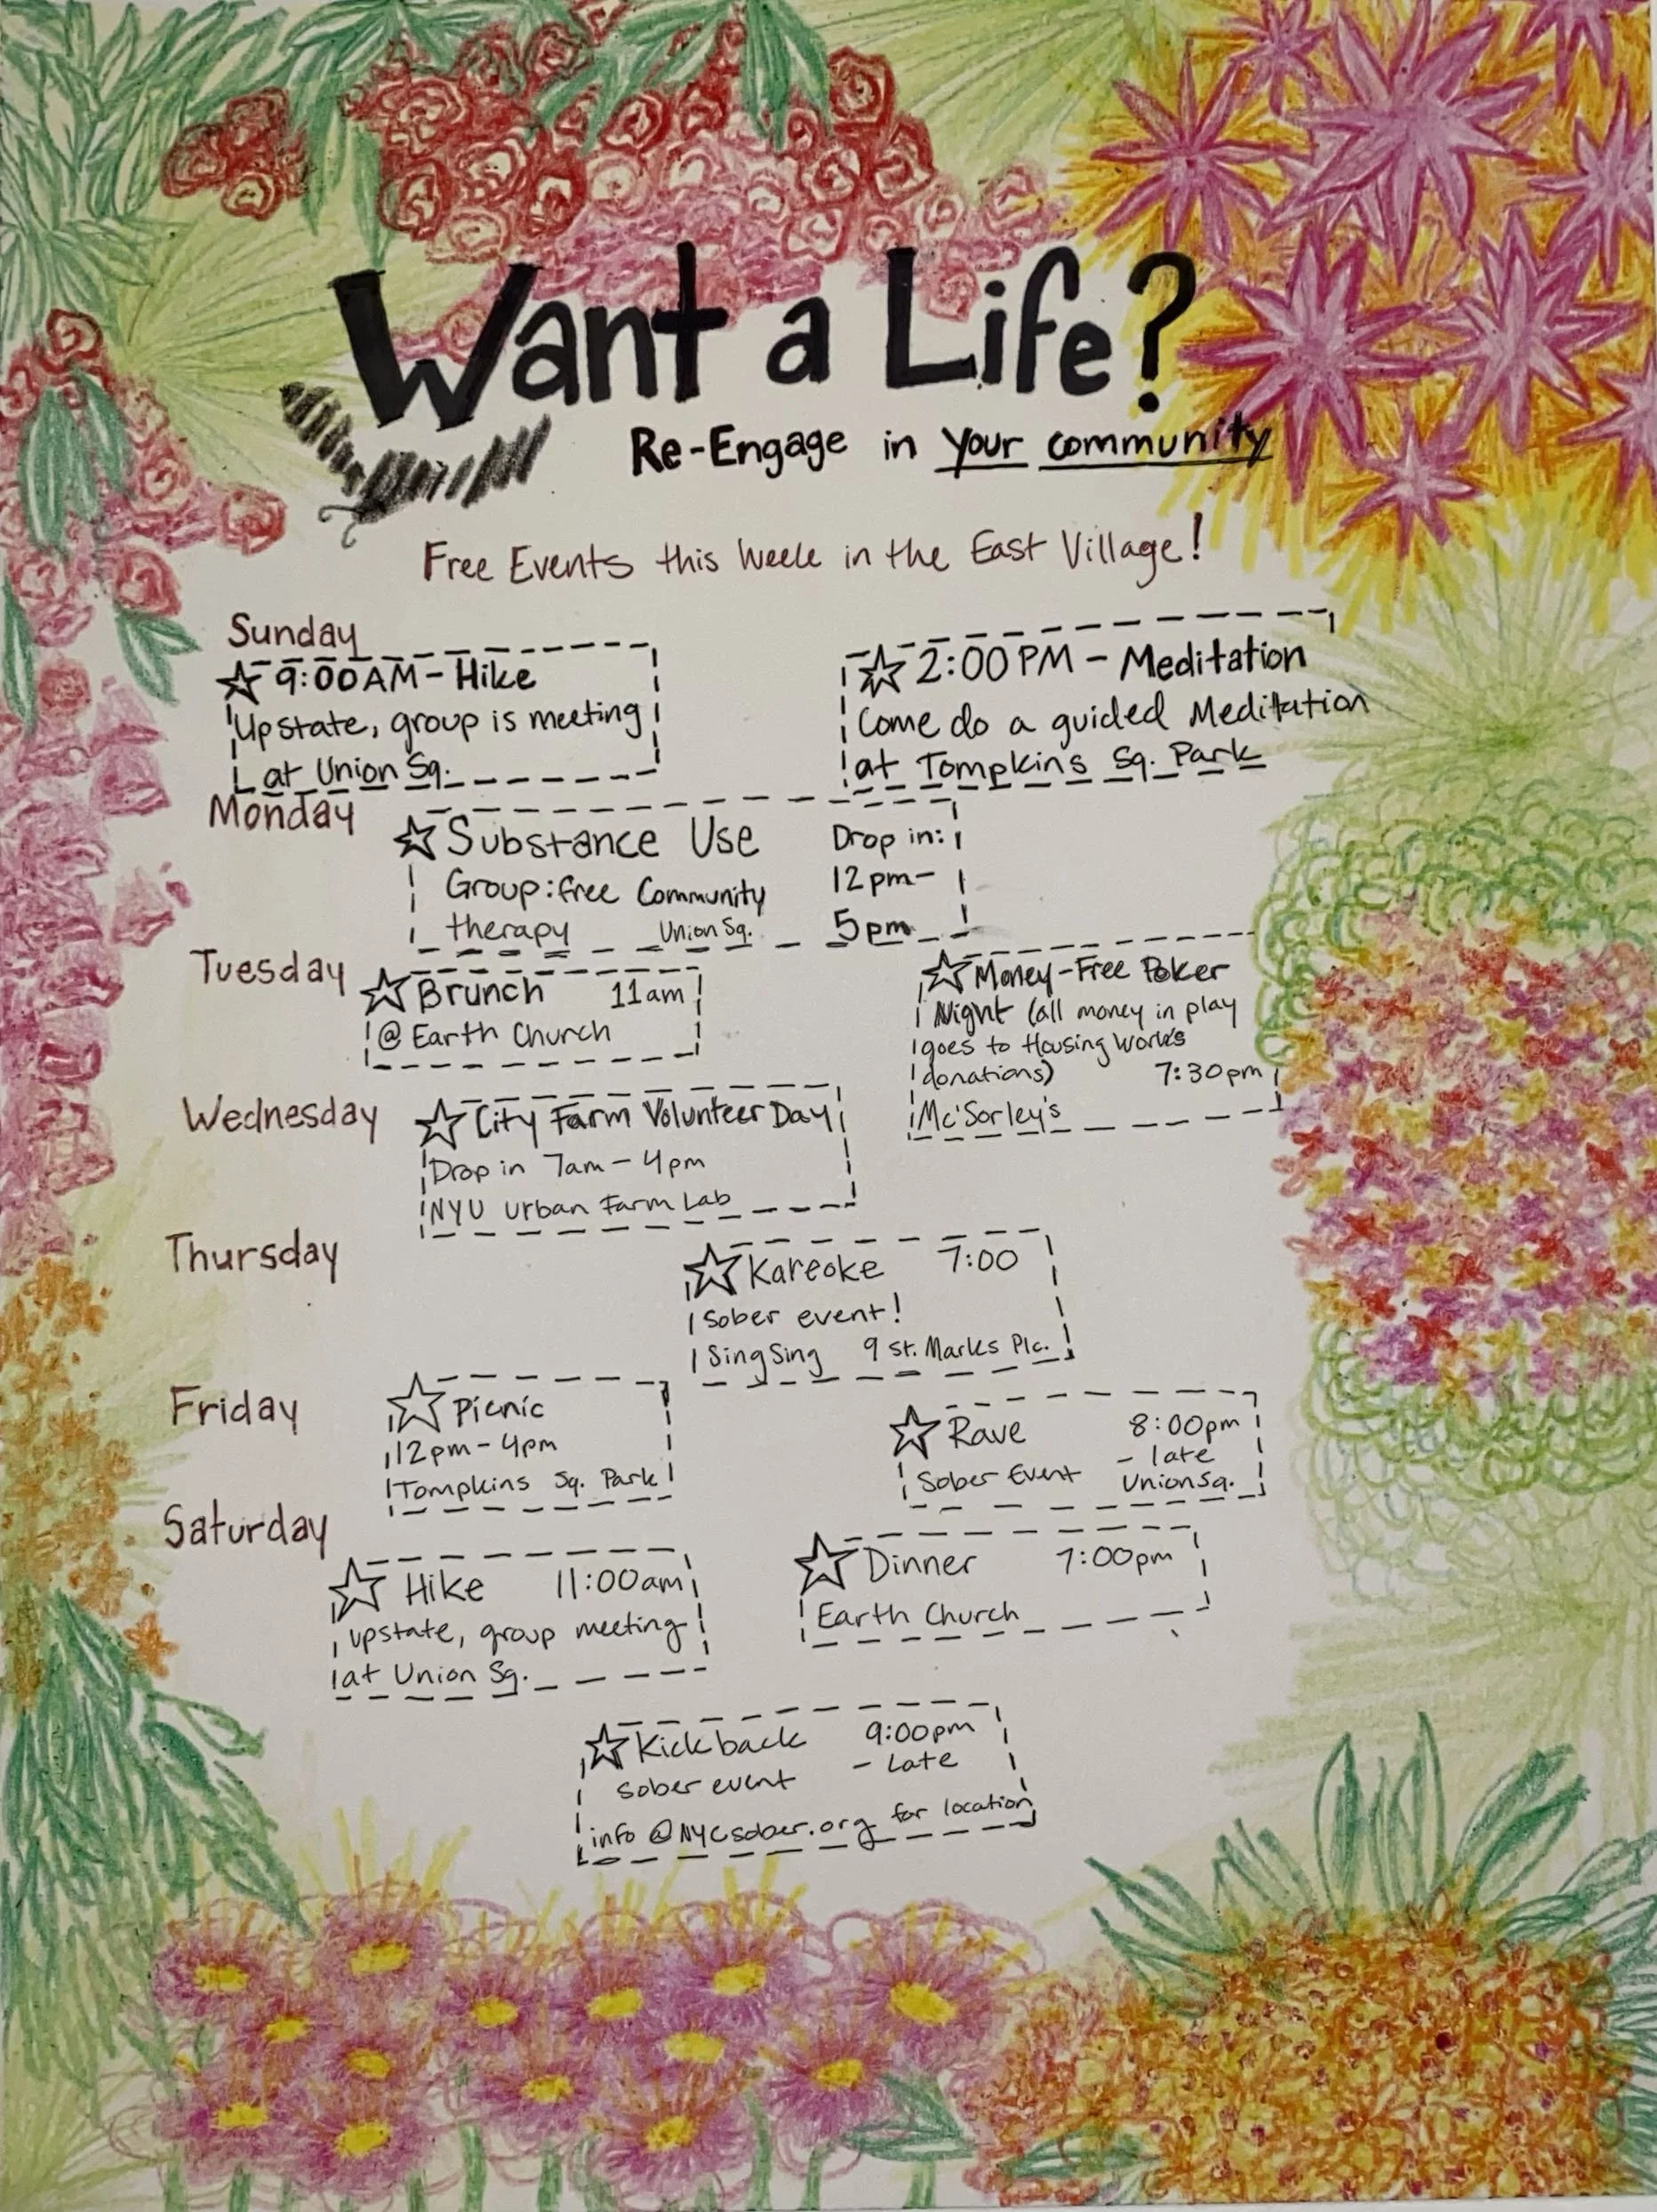 Want a Life?
Re-Engage in your community
Free Events this Week in the East Village!
Sunday
9:00AM - Hike
Upstate, group is meeting
at Union Sq.
2:00PM - Meditation
Come do a guided Meditation
at Tompkins Sq. Park
Monday
Substance Use
Group: free Community
therapy Union Sq.
Drop in:
12pm-
5pm
Tuesday
Brunch 11am
@ Earth Church
Money-Free Poker
Night (all money in play
goes to Housing Works
donations) 7:30pm
McSorley's
Wednesday
City Farm Volunteer Day
Drop in 7am - 4pm
NYU Urban Farm Lab
Thursday
Kareoke 7:00
Sober event!
Sing Sing 9 St. Marks Plc.
Friday
Picnic
12pm - 4pm
Tompkins Sq. Park
Rave 8:00pm
- late
Sober Event Union Sq.
Saturday
Hike 11:00am
upstate, group meeting
at Union Sq.
Dinner 7:00pm
Earth Church
Kickback 9:00pm
- Late
sober event
info@NYCsober.org for location